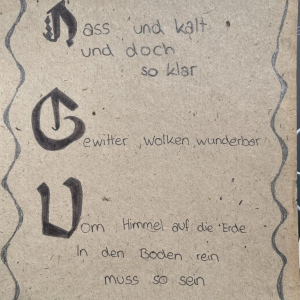 Nass und kalt
und doch
so klar
Gewitter, Wolken, wunderbar
Vom Himmel auf die Erde
In den Boden rein
muss so sein